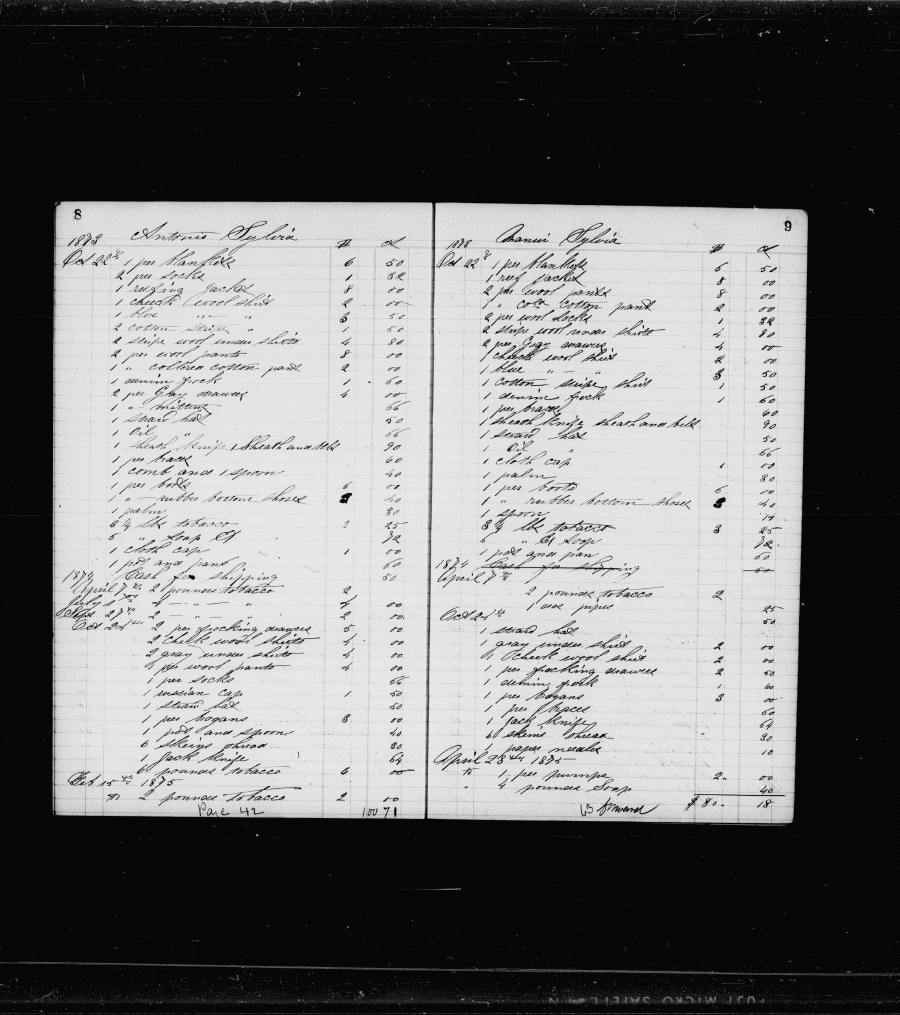 8
1873 Antonio Sylvia # cts
Oct 22nd 1 per blankets 6 50
2 per socks 1 32
1 reefing jacket 8 00
1 check wool shirt 2 00
1 blue " — " 3 50
2 cotton stripe " 1 50
2 stripe wool under shirts 4 80
2 per wool pants 8 00
1 " collored cotton pant 2 00
1 denim frock 1 60
2 per Gray drawers 4 00
1 " — mittens 66
1 straw hat 50
1 Oil " 66
1 sheath knife 1 Sheath and belt 90
1 per braces 60
1 comb and 1 spoon 40
1 per boots 6 00
1 " — rubber bottom shoes 40
1 palm 80
8 ¼ lbs tobacco 3 25
6 " Soap 72
1 cloth cap 1 00
1 pot and pan 60
1874 Cash for shipping 50
April 7th 2 pounds tobacco 2
July 4 — " — " 4 00
Sept 27th 2 — " — " 2 00
Oct 24th 2 per frocking drawers 5 00
2 check wool shirts 4 00
2 gray under shirts 4 00
per wool pants 4 00
1 per socks 66
1 russian cap 1 50
1 straw hat 50
1 per bogans 3 00
1 pot and spoon 40
6 skeins thread 30
1 Jack knife 64
6 pounds tobacco 6 00
Feb 15th 1875
2 pounds tobacco 2 00
Page 42 100 71
9
1873 Sylvia # cts
Oct 22nd 1 per blankets 6 50
1 reef jacket 8 00
2 per wool pants 8 00
1 " cold cotton pant 2 00
2 per wool socks 1 32
2 stripe wool under shirts 4 80
2 per Gray drawers 4 00
1 check wool shirt 2 00
1 blue " — " 3 50
1 cotton stripe shirt 1 50
1 denim frock 1 60
1 per braces 60
1 sheath knife sheath and belt 90
1 straw hat 50
1 Oil " 66
1 cloth cap 1 00
1 palm 80
1 per boots 6 00
1 " rubber bottom shoes 40
1 spoon 14
8 ¼ lbs tobacco 3 25
6 " Soap 72
1 pot and pan 60
1874 Cash for shipping 50
April 7th
2 pounds tobacco 2
1 doz pipes 25
Oct 24th 50
1 straw hat
1 gray under shirt 2 00
1 check wool shirt 2 00
1 per frocking drawers 2 50
1 denim frock 1 60
1 per bogans 3 00
1 per braces 60
1 Jack knife 64
6 skeins thread 30
1 paper needles 10
April 28th 1875
to 1 per pumps 2 00
" 4 pounds Soap 40
63 forward $80. 18